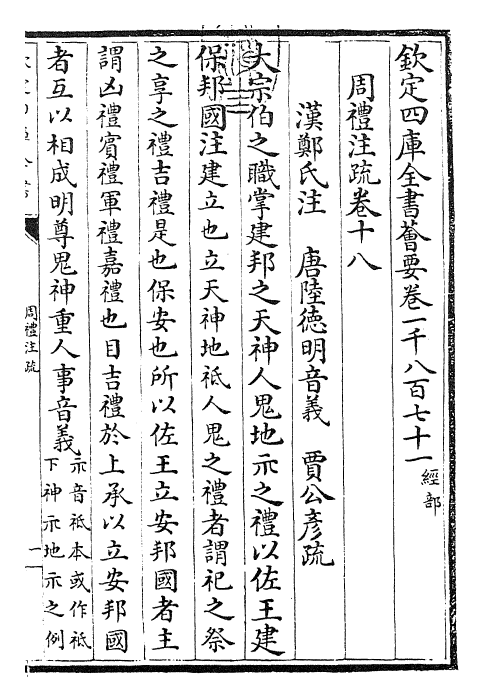 欽定四庫全書薈要卷一千八百七十一 經部
周禮注疏卷十八
漢鄭氏注 唐陸德明音義 賈公彥疏
大宗伯之職掌建邦之天神人鬼地示之禮以佐王建
保邦國注建立也立天神地祗人鬼之禮者謂祀之祭
之享之禮吉禮是也保安也所以佐王立安邦國者主
謂凶禮賓禮軍禮嘉禮也目吉禮於上承以立安邦國
者互以相成明尊鬼神重人事音義示音祗本或作祗
下神示地示之例
周禮注疏
一